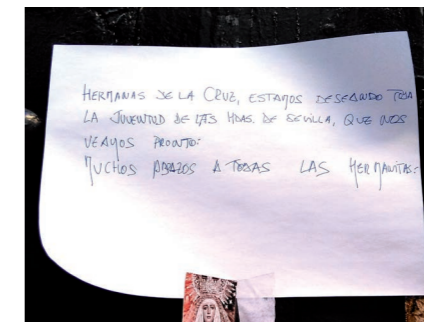 HERMANAS DE LA CRUZ, ESTAMOS DESEANDO TODA
LA JUVENTUD DE LAS HDAS. DE SEVILLA, QUE NOS
VEAMOS PRONTO.
MUCHOS ABRAZOS A TODAS LAS HERMANITAS.